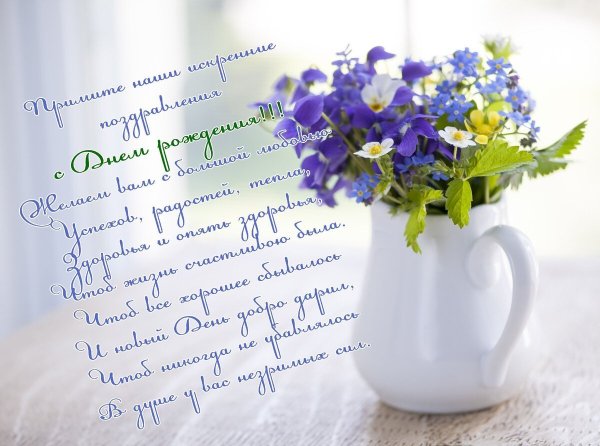 Примите наши искренние
поздравления
с Днем рождения!!!
Желаем вам с большой любовью:
Успехов, радостей, тепла,
Здоровья и опять здоровья,
Чтоб жизнь счастливою была.
Чтоб все хорошее сбывалось
И новый День добро дарил,
Чтоб никогда не убавлялось
В душе у вас незримых сил.